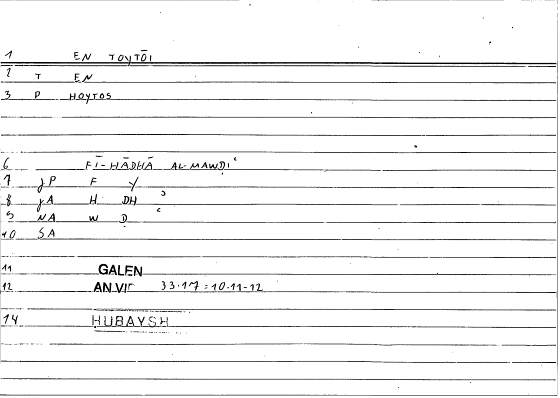 1 EN TOYTŌI
2 T EN
3 P HOYTOS
6 FĪ-HĀDHĀ AL-MAWḌIʿ
7 JP F Y
8 JA H DH ʾ
9 NA W Ḍ ʿ
10 SA
11 GALEN
12 AN VII 33.17 = 10.11-12
14 HUBAYSH